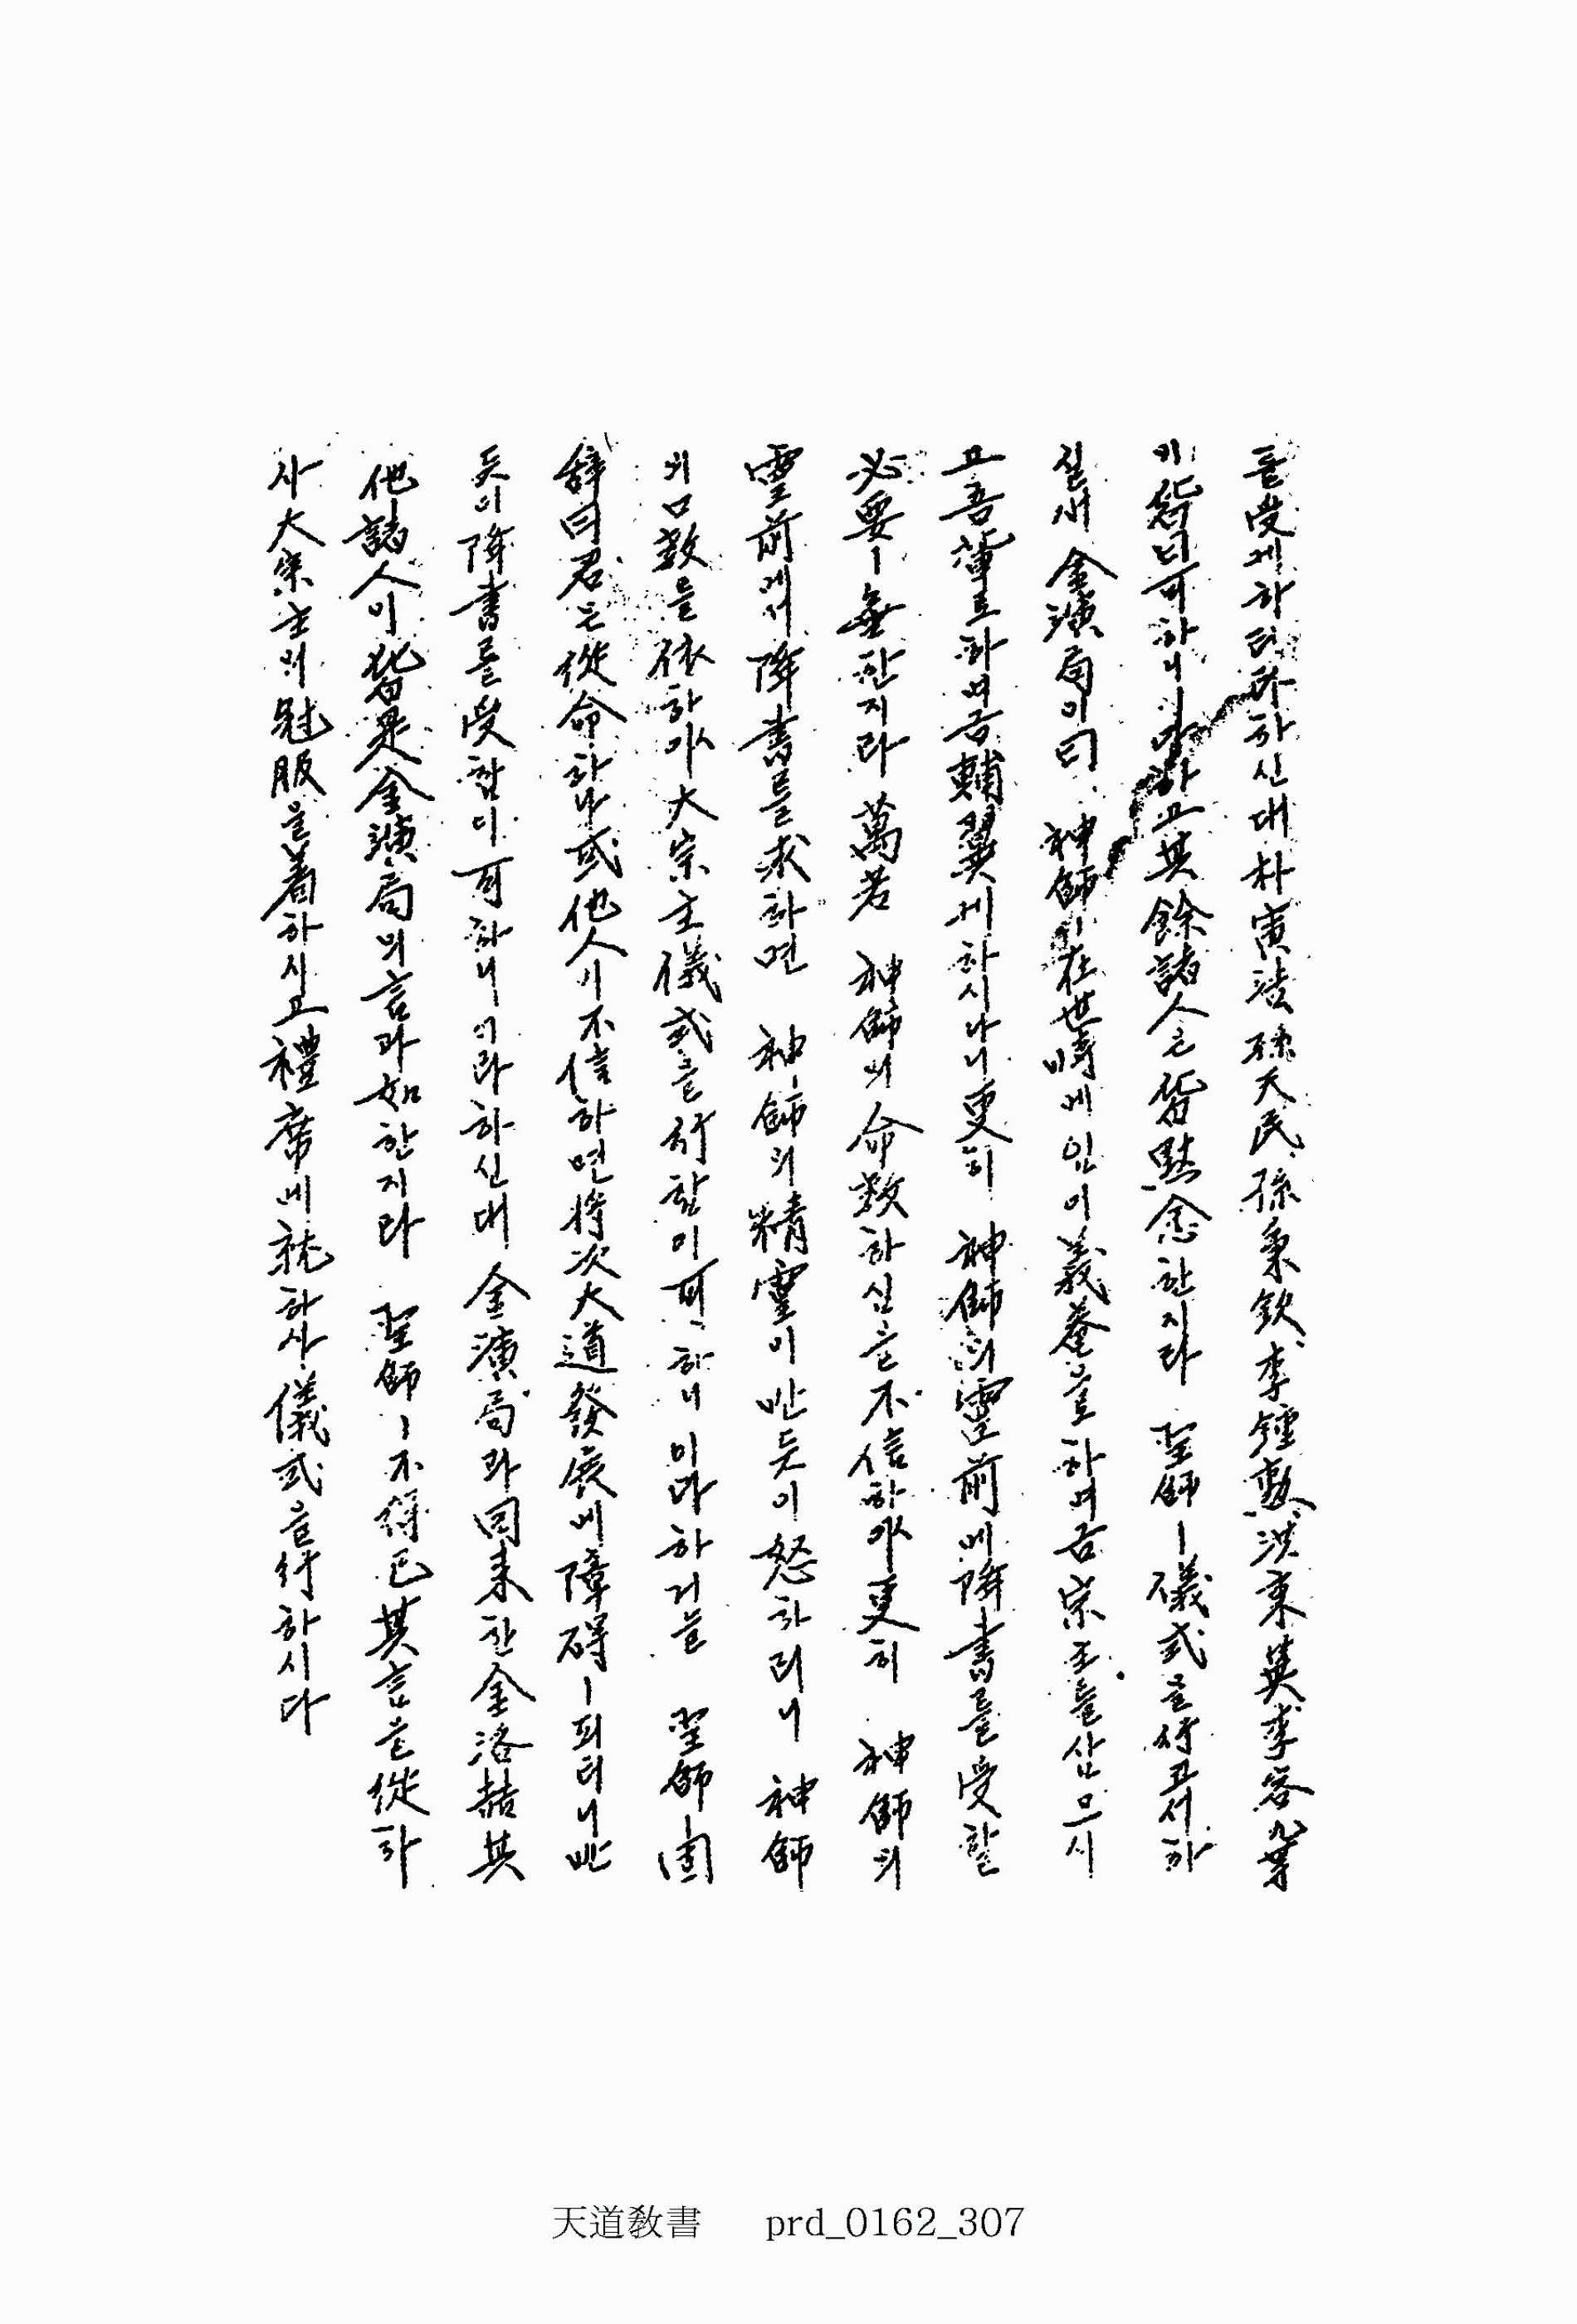 를受케하다라하신대朴寅浩孫天民孫秉欽李鍾勳洪秉箕李容九等
이皆曰可하니이다하고其餘諸人은皆黙念한지라 聖師ㅣ儀式을行고저하
실새 金演局이曰 神師ㅣ在世時에임이義菴을하여금宗主를삼으시
고吾輩로하여금輔翼케하시나니更히 神師의靈前에降書를受할
必要ㅣ無한지라萬若 神師의命敎하심을不信하야更히 神師의
靈前에서降書를求하면 神師의精靈이반듯이怒하리니 神師
의口敎를依하야大宗主儀式을行함이可하니이다하거늘 聖師ㅣ固
辞曰君은從命하나或他人이不信하면將次大道發展에障碍ㅣ되리니반
듯이降書를受함이可하니이라하신대金演局과同來한金洛喆其
他諸人이皆是金演局의言과如한지라 聖師ㅣ不得已其言을從하
사大宗主의冠服을着하시고禮席에就하사儀式을行하시다
天道敎書 prd_0162_307